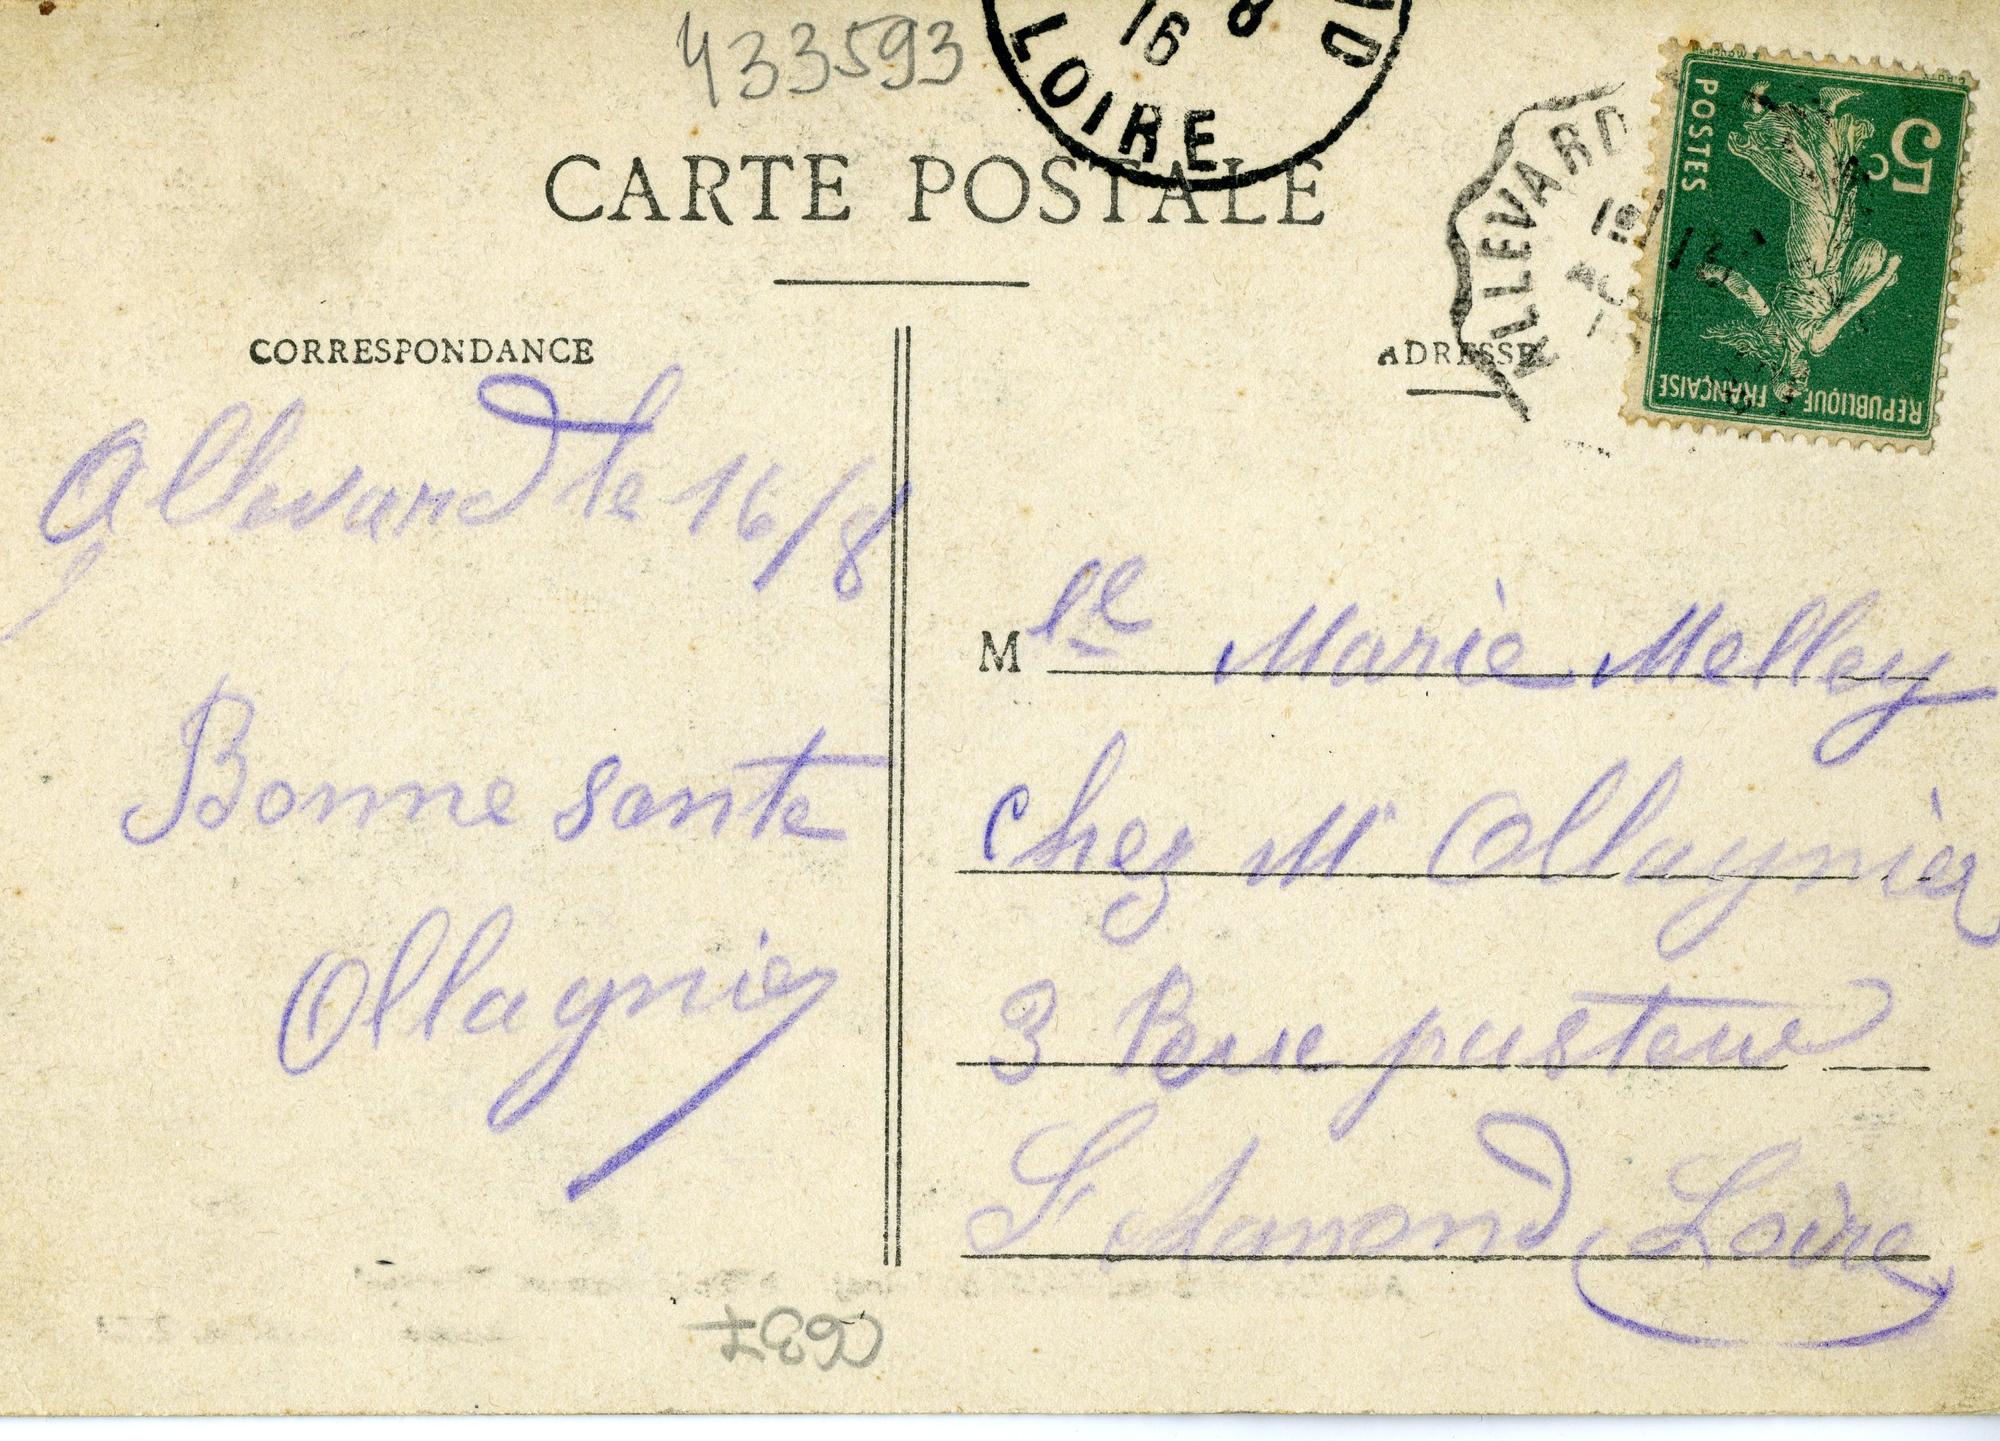 433593
16 8
LOIRE
CARTE POSTALE
ALLEVARD
5c
POSTES
REPUBLIQUE FRANÇAISE
CORRESPONDANCE
ADRESSE
Allevard le 16/8
Bonne sante
Ollagnier
Mlle Marie Melley
chez Mr Ollagnier
3 Rue pasteur
St Chamond Loire